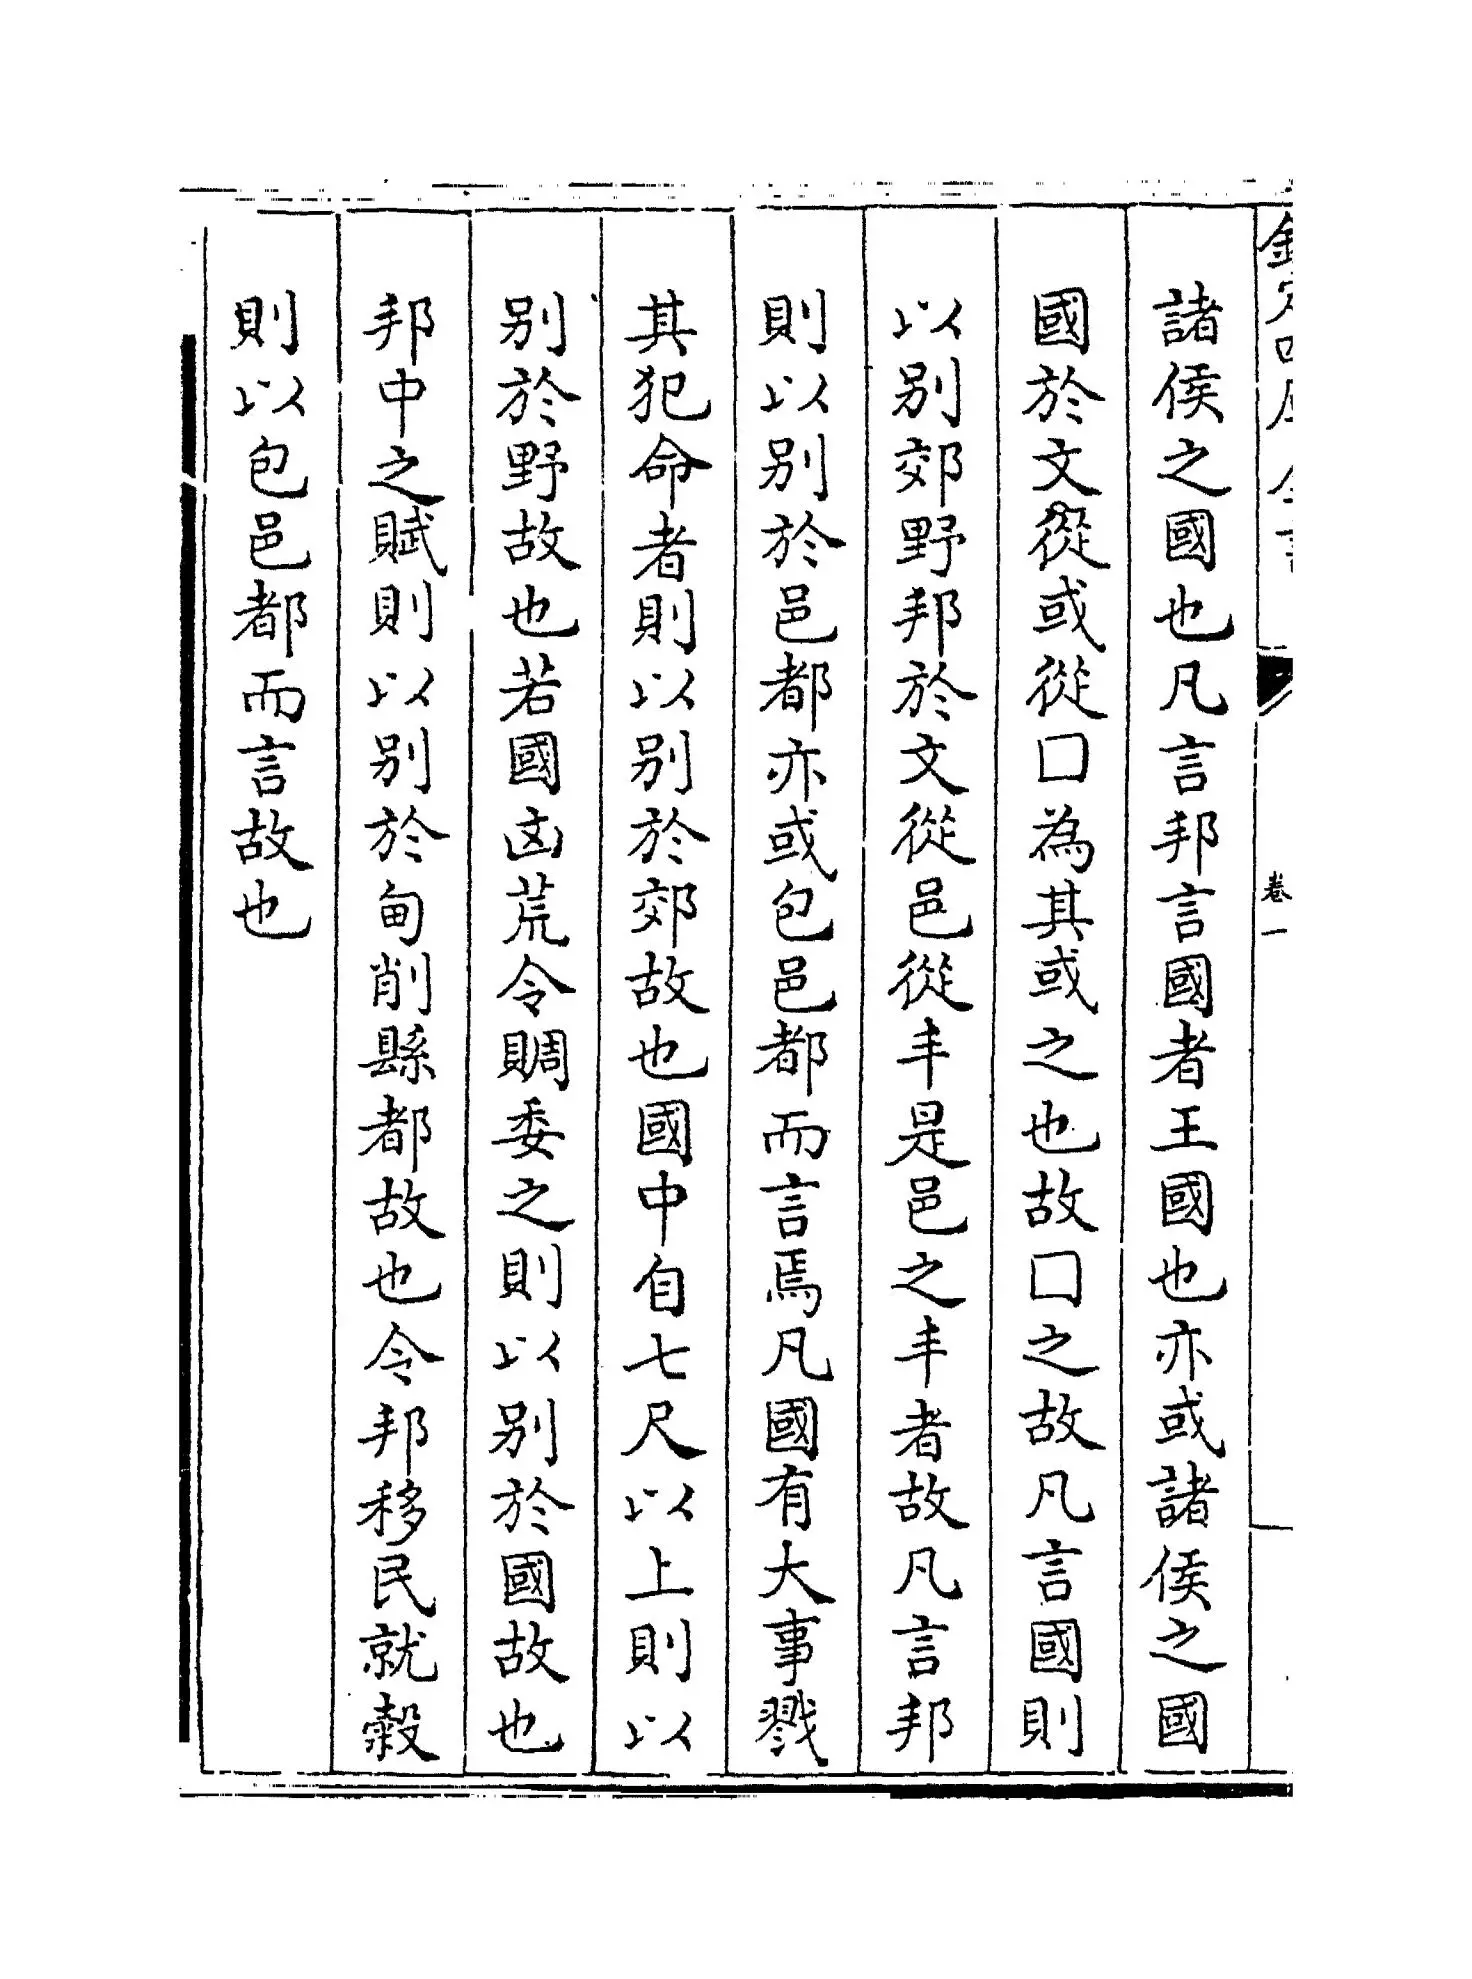 欽定四庫全書
卷一
諸侯之國也凡言邦言國者王國也亦或諸侯之國
國於文從或從囗為其或之也故囗之故凡言國則
以别郊野邦於文從邑從丰是邑之丰者故凡言邦
則以别於邑都亦或包邑都而言焉凡國有大事戮
其犯命者則以别於郊故也國中自七尺以上則以
别於野故也若國凶荒令賙委之則以别於國故也
邦中之賦則以别於甸削縣都故也令邦移民就榖
則以包邑都而言故也